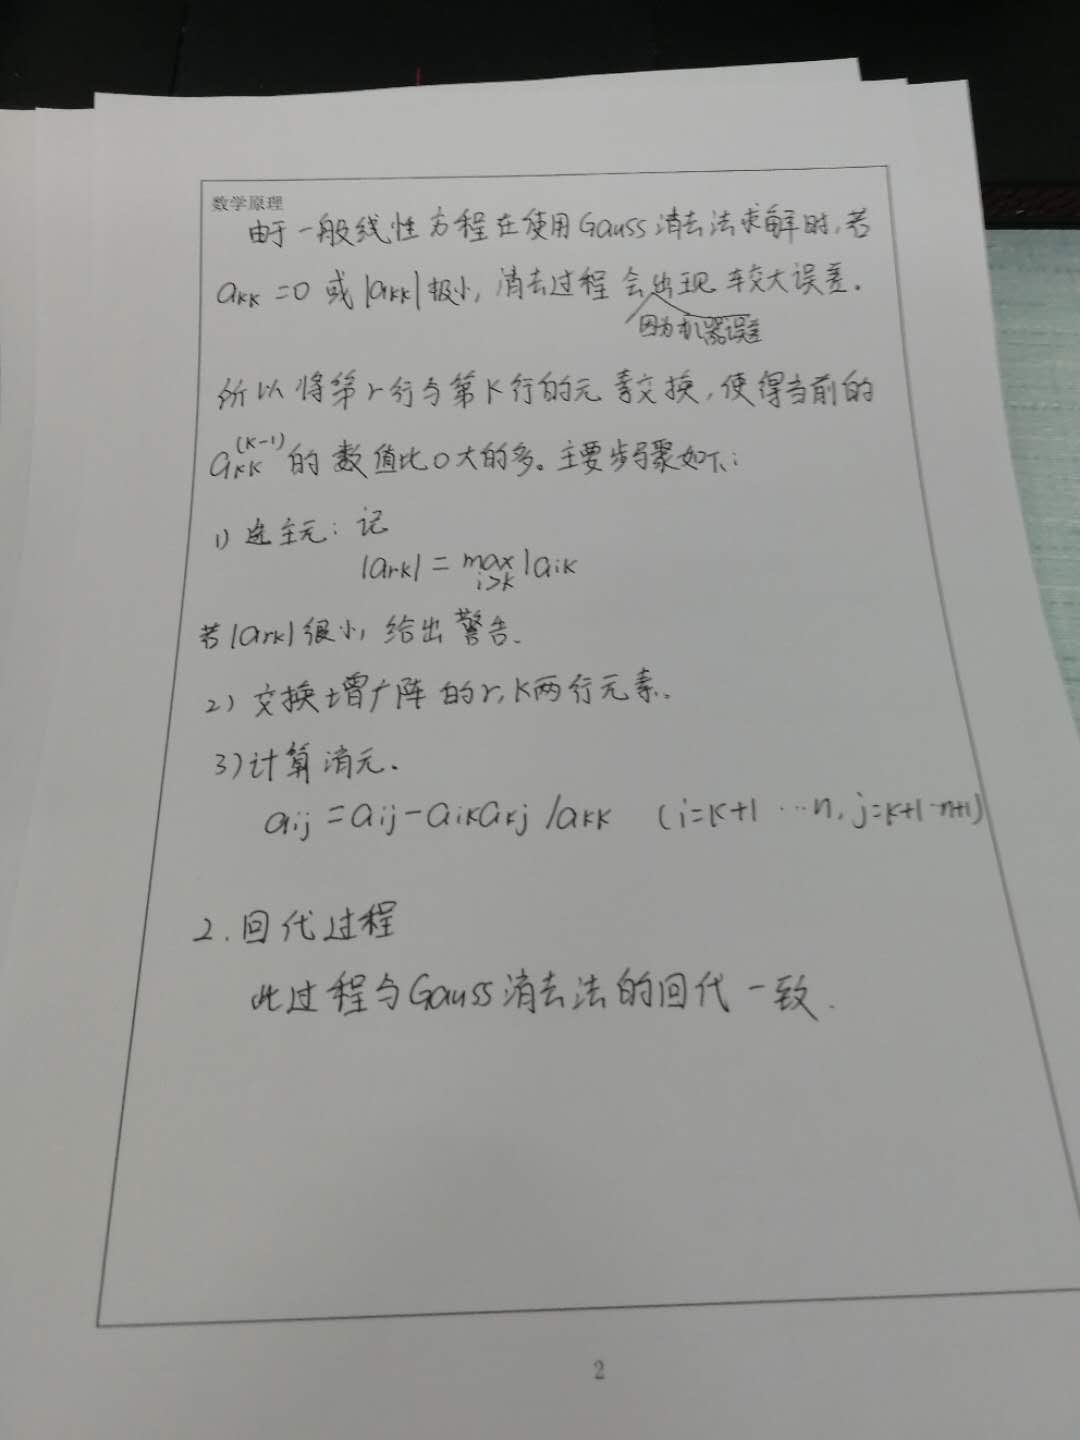 数学原理
由于一般线性方程在使用Gauss消去法求解时,若
aкк=0 或|aкк|极小,消去过程会出现较大误差.
因为机器误差
所以将第r行与第K行的元素交换,使得当前的
aкк^(K-1)的数值比0大的多。主要步骤如下:
1) 选主元: 记
|ark| = max |aik
i>k
若|ark|很小,给出警告.
2) 交换增广阵的r,K两行元素.
3)计算消元.
aij=aij-aikakj/akk (i=k+1 …n, j=k+1…n+1)
2.回代过程
此过程与Gauss消去法的回代一致.
2